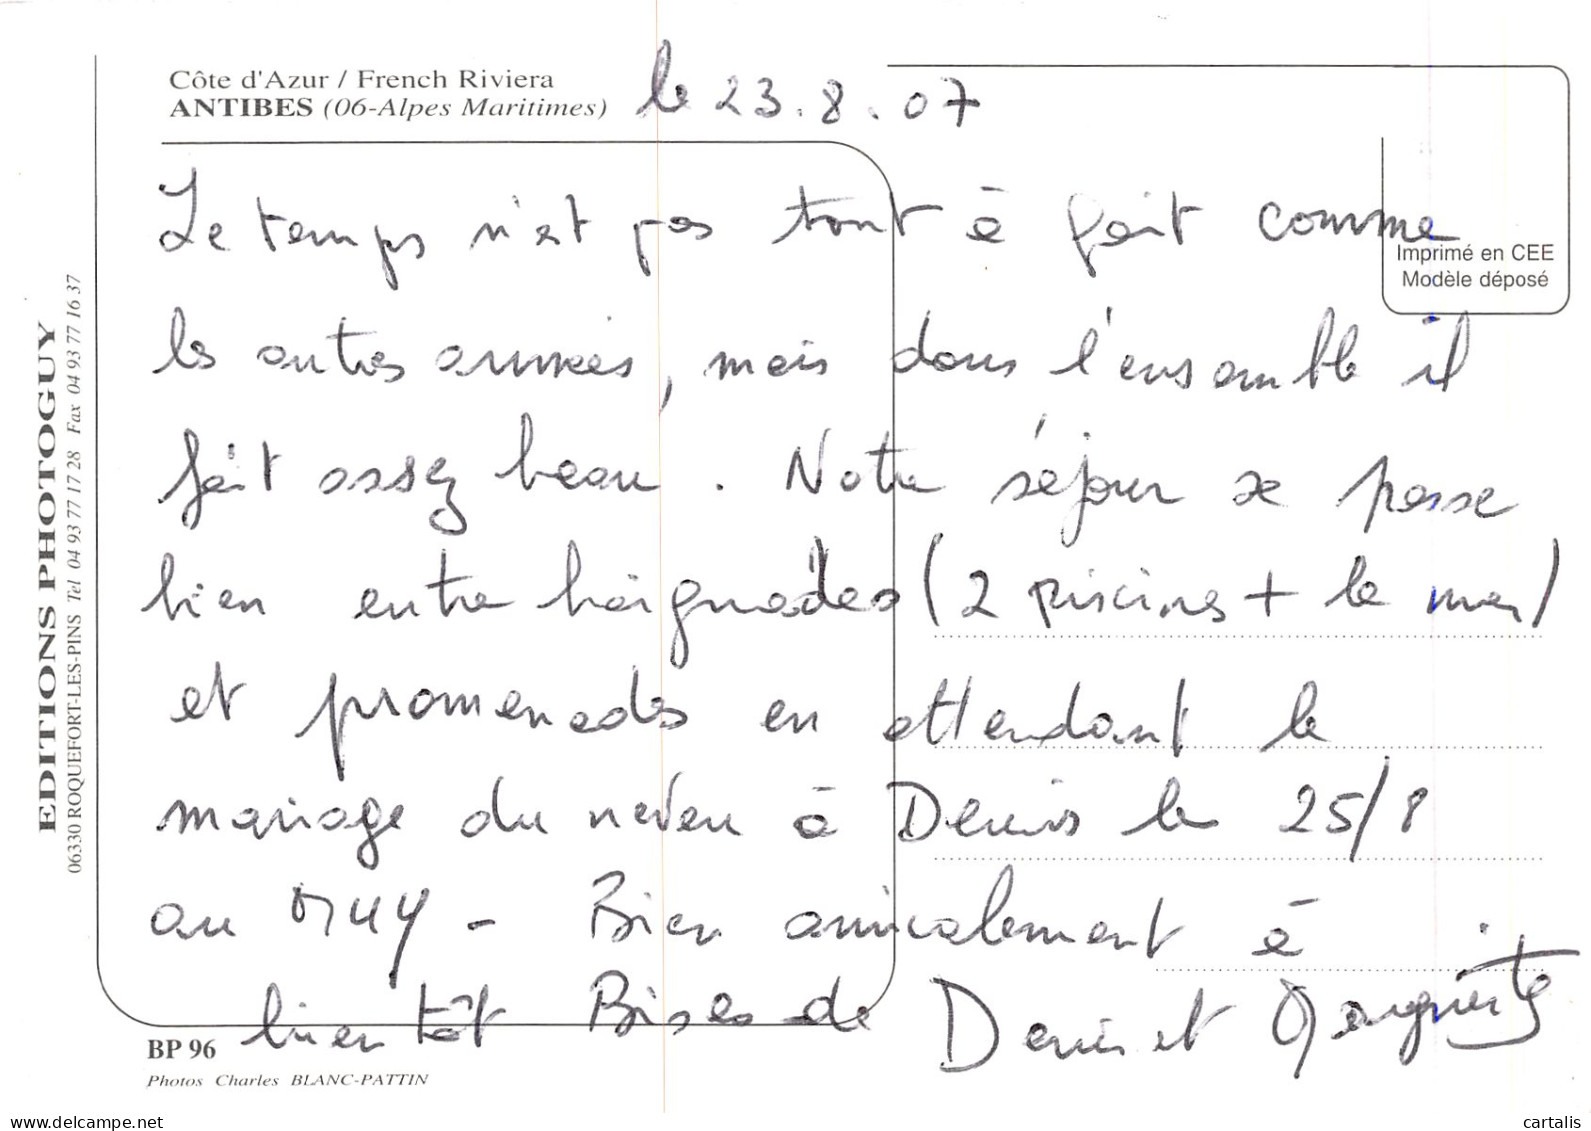 Côte d'Azur / French Riviera
ANTIBES (06-Alpes Maritimes)
le 23.8.07
Le temps n'est pas tout à fait comme
les autres années, mais dans l'ensemble il
fait assez beau. Notre séjour se passe
bien entre baignades (2 piscines + la mer)
et promenades en attendant le
mariage du neveu à Denis le 25/8
au MUY - Bien amicalement à
bientôt Bises de Denis et Marguerite
Imprimé en CEE
Modèle déposé
EDITIONS PHOTOGUY
06330 ROQUEFORT-LES-PINS Tel 04 93 77 17 28 Fax 04 93 77 16 37
BP 96
Photos Charles BLANC-PATTIN
www.delcampe.net
cartalis